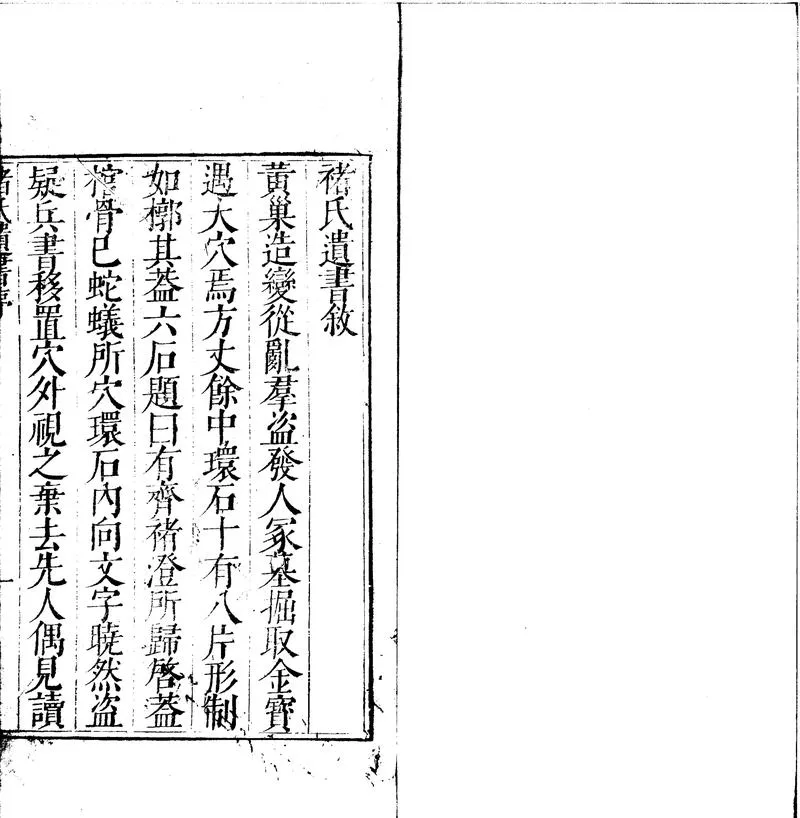 褚氏遺書敘
黃巢造變從亂羣盜發人冢墓掘取金寶
遇大穴焉方丈餘中環石十有八片形制
如槨其葢六石題曰有齊褚澄所歸啓葢
棺骨已蛇蟻所穴環石內向文字曉然盜
疑兵書移置穴外視之棄去先人偶見讀
褚氏遺書序